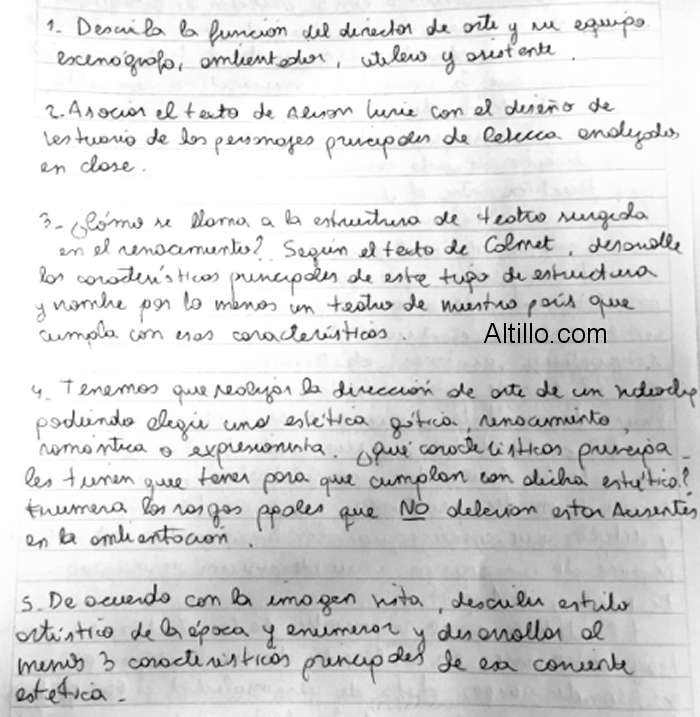 1. Describa la función del director de arte y su equipo
escenógrafo, ambientador, utilero y asistente.
2. Asociar el texto de Alison Lurie con el diseño de
vestuario de los personajes principales de Rebecca analizados
en clase.
3- ¿Cómo se llama a la estructura de teatro surgida
en el renacimiento? Según el texto de Calmet, desarrolle
las características principales de este tipo de estructura
y nombre por lo menos un teatro de nuestro país que
cumpla con esas características.
Altillo.com
4. Tenemos que realizar la dirección de arte de un videoclip
pudiendo elegir una estética gótica, renacimiento,
romántica o expresionista. ¿Qué características principa-
les tienen que tener para que cumplan con dicha estética?
Enumera los rasgos ppales que NO deberían estar ausentes
en la ambientación.
5. De acuerdo con la imagen vista, describir estilo
artístico de la época y enumerar y desarrollar al
menos 3 características principales de esa corriente
estética.